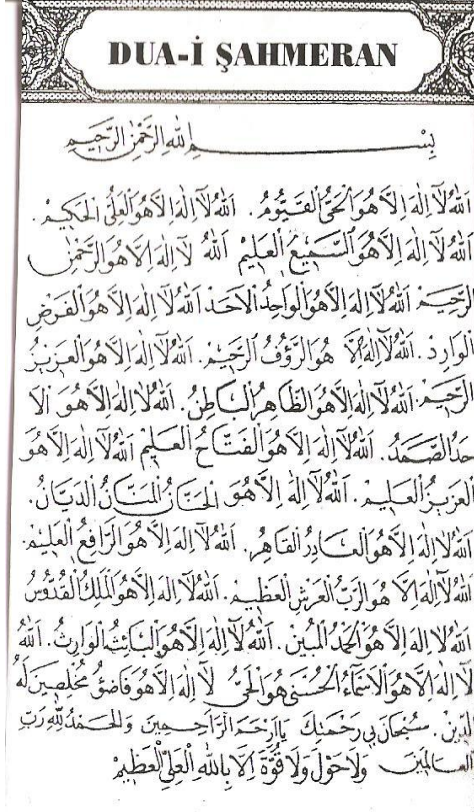 DUA-İ ŞAHMERAN
بِسْمِ اللهِ الرَّحْمٰنِ الرَّحِيمِ
اَللهُ لَآ اِلٰهَ اِلَّا هُوَ الْحَيُّ الْقَيُّومُ. اَللهُ لَآ اِلٰهَ اِلَّا هُوَ الْعَلِيُّ الْحَكِيمُ.
اَللهُ لَآ اِلٰهَ اِلَّا هُوَ السَّمِيعُ الْعَلِيمُ اَللهُ لَآ اِلٰهَ اِلَّا هُوَ الرَّحْمٰنُ
الرَّحِيمُ اَللهُ لَآ اِلٰهَ اِلَّا هُوَ الْوَاحِدُ الْاَحَدُ اَللهُ لَآ اِلٰهَ اِلَّا هُوَ الْفَرْضِ
الْوَارِدْ. اَللهُ لَآ اِلٰهَ اِلَّا هُوَ الرَّؤُفُ الرَّحِيمُ. اَللهُ لَآ اِلٰهَ اِلَّا هُوَ الْعَزِيزُ
الرَّحِيمُ. اَللهُ لَآ اِلٰهَ اِلَّا هُوَ الظَّاهِرُ الْبَاطِنُ. اَللهُ لَآ اِلٰهَ اِلَّا هُوَ الْاَ
حَدُ الصَّمَدُ. اَللهُ لَآ اِلٰهَ اِلَّا هُوَ الْفَتَّاحُ الْعَلِيمُ اَللهُ لَآ اِلٰهَ اِلَّا هُوَ
الْعَزِيزُ الْعَلِيمُ. اَللهُ لَآ اِلٰهَ اِلَّا هُوَ الْحَنَّانُ الْمَنَّانُ الدَّيَّانُ.
اَللهُ لَآ اِلٰهَ اِلَّا هُوَ الْقَاهِرُ. اَللهُ لَآ اِلٰهَ اِلَّا هُوَ الرَّافِعُ الْعَلِيمُ.
اَللهُ لَآ اِلٰهَ اِلَّا هُوَ الرَّبُّ الْعَرْشِ الْعَظِيمِ. اَللهُ لَآ اِلٰهَ اِلَّا هُوَ الْمَلِكُ الْقُدُّوسُ
اَللهُ لَآ اِلٰهَ اِلَّا هُوَ الْمُبِينُ. اَللهُ لَآ اِلٰهَ اِلَّا هُوَ الْوَارِثُ. اَللهُ
لَآ اِلٰهَ اِلَّا هُوَ الْاَسْمَاءُ الْحُسْنٰى هُوَ الْحَيُّ لَآ اِلٰهَ اِلَّا هُوَ مُخْلِصِينَ لَهُ
الدِّينَ. يَا اَرْحَمَ الرَّاحِمِينَ وَالْحَمْدُ لِلّٰهِ رَبِّ
الْعَالَمِينَ وَلَا حَوْلَ وَلَا قُوَّةَ اِلَّا بِاللهِ الْعَلِيِّ الْعَظِيمِ